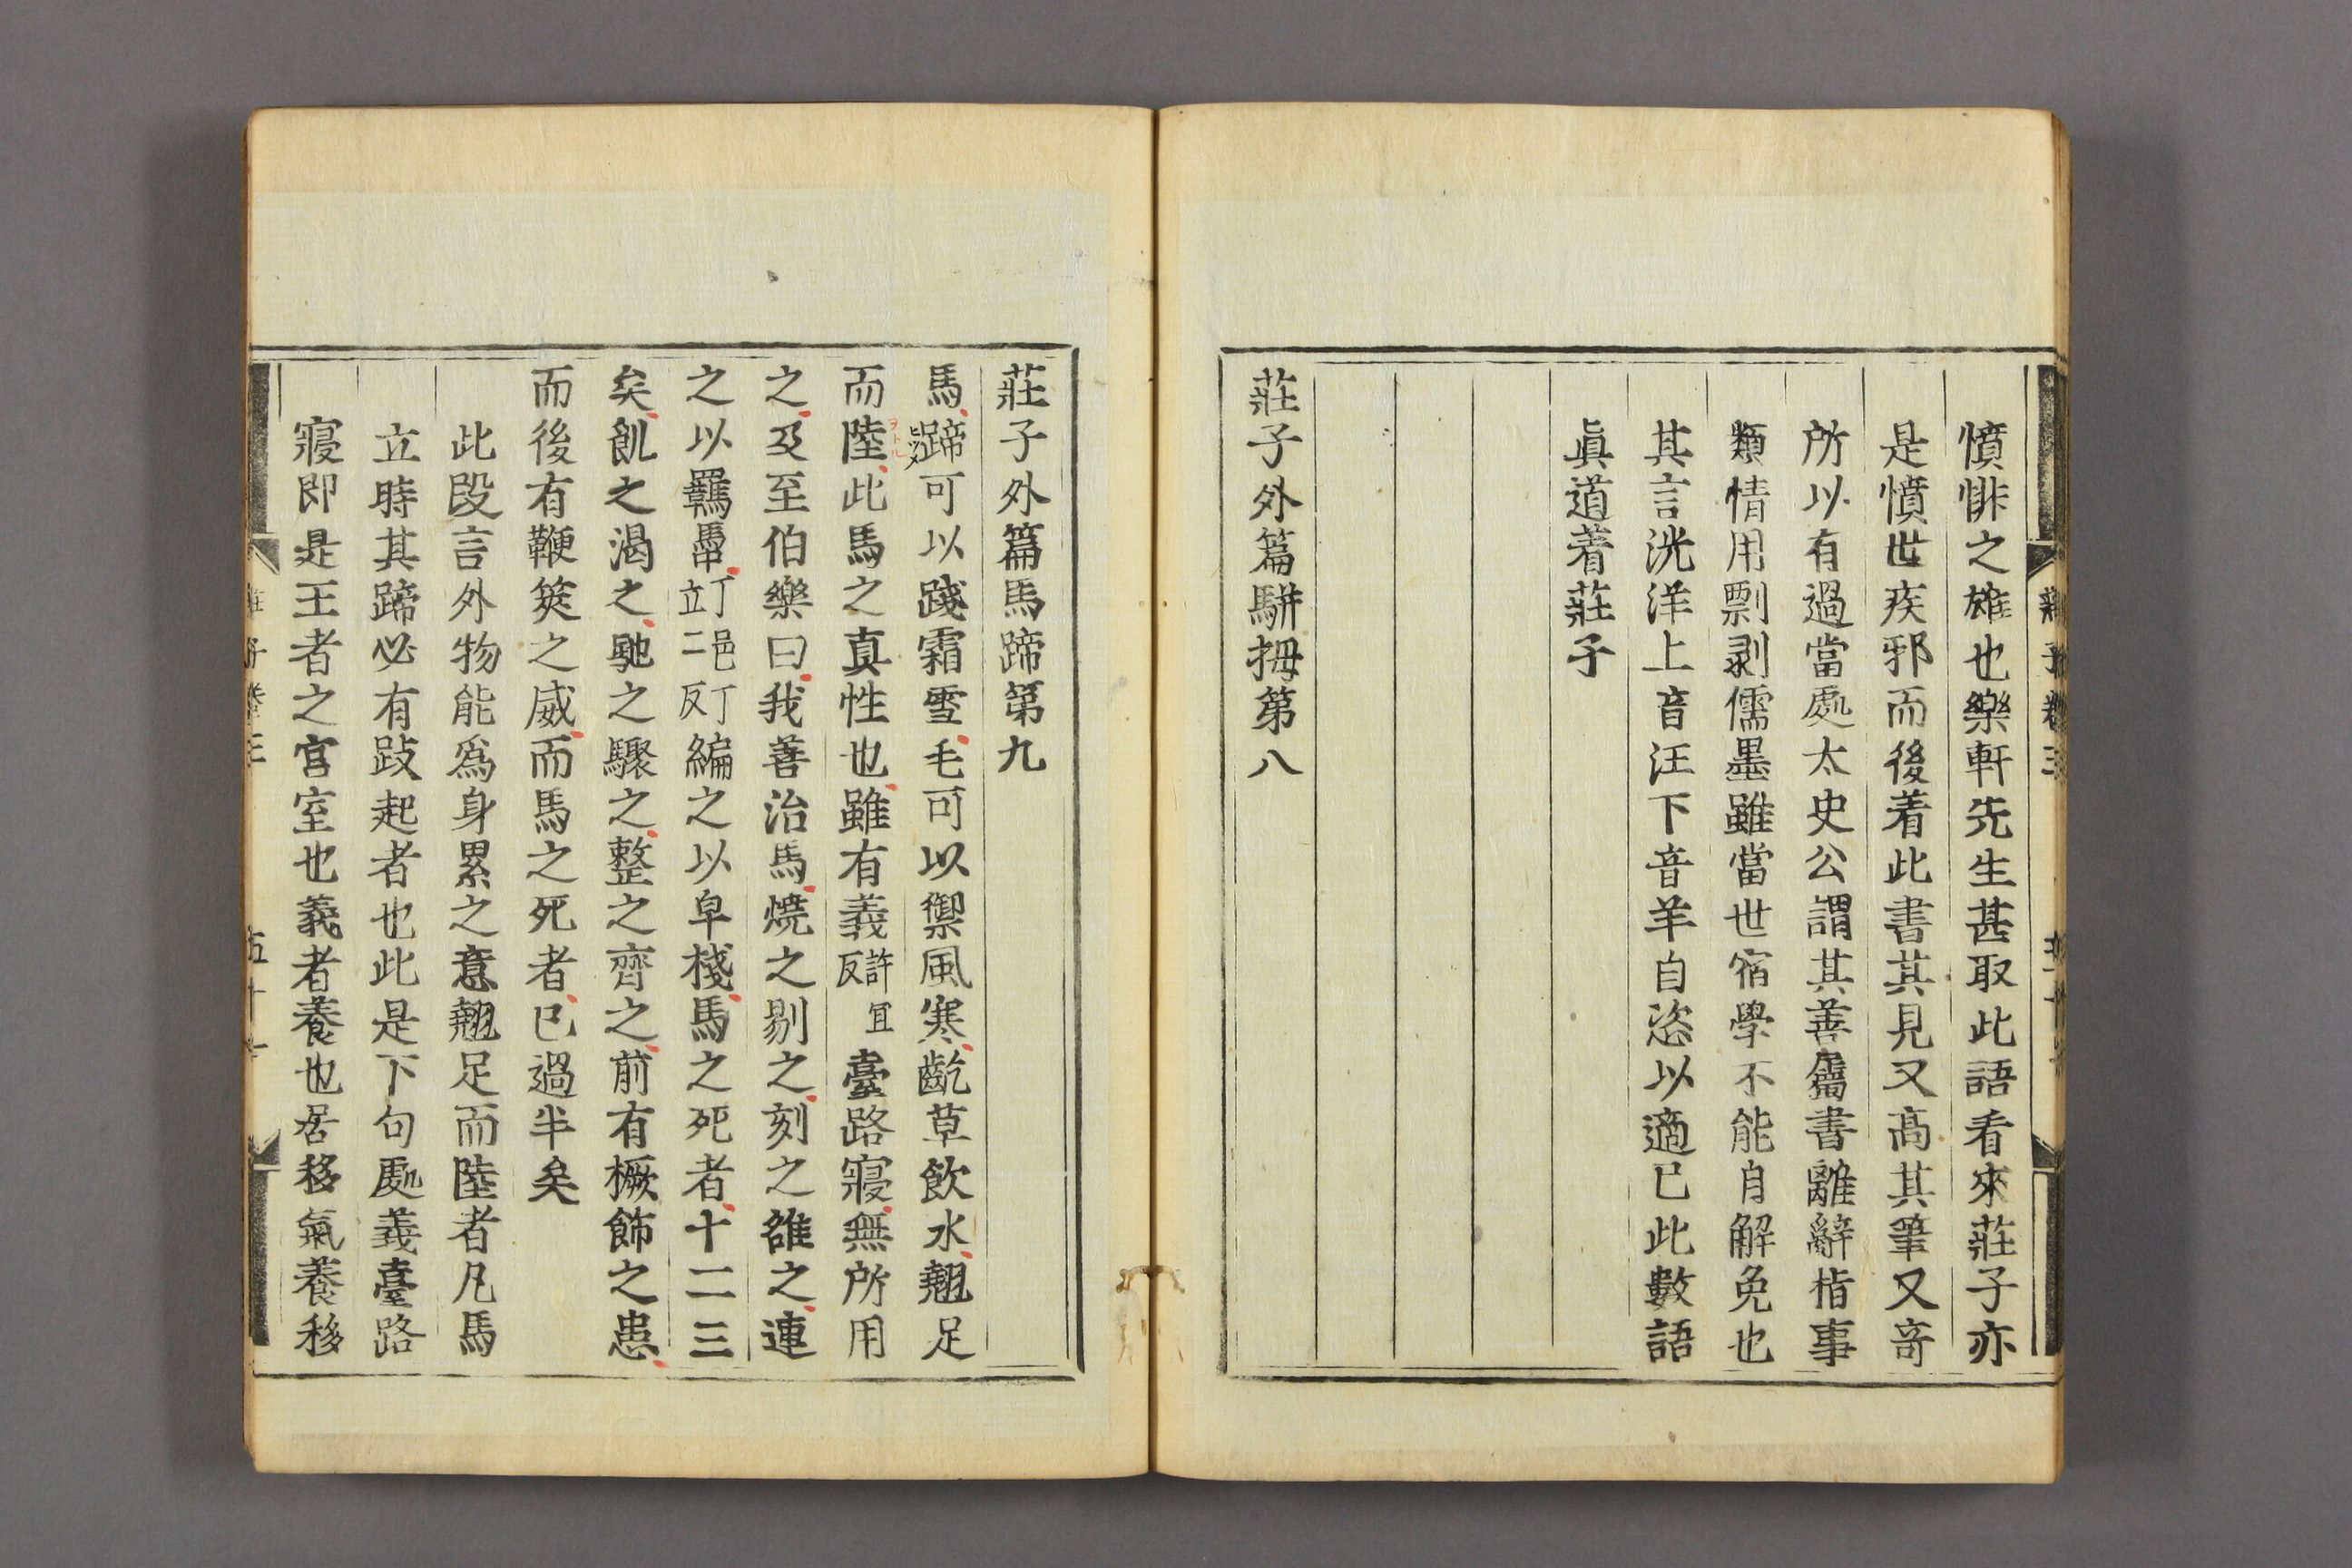 憤悱之雄也樂軒先生甚取此語看來莊子亦
是憤世疾邪而後着此書其見又高其筆又竒
所以有過當處太史公謂其善屬書離辭指事
類情用剽剥儒墨雖當世宿學不能自解免也
其言洸洋上音汪下音羊自恣以適已此數語
眞道着莊子
莊子外篇駢拇第八
莊子外篇馬蹄第九
馬蹄可以踐霜雪毛可以禦風寒齕草飲水翹足
ヒツメ
而陸此馬之真性也雖有義許宜反臺路寢無所用
ヲトル
之及至伯樂曰我善治馬燒之剔之刻之雒之連
之以羈馽丁邑丁立二反編之以皁棧馬之死者十二三
矣飢之渴之馳之驟之整之齊之前有橛飾之患
而後有鞭筴之威而馬之死者已過半矣
此段言外物能爲身累之意翹足而陸者凡馬
立時其蹄必有跂起者也此是下句處義臺路
寢即是王者之宫室也義者養也居移氣養移